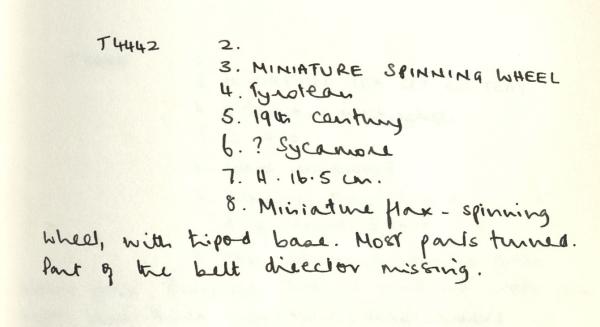 T4442 2.
3. MINIATURE SPINNING WHEEL
4. Tyrolean
5. 19th century
6. ? Sycamore
7. H. 16.5 cm.
8. Miniature flax-spinning
wheel, with tripod base. Most parts turned.
Part of the belt director missing.